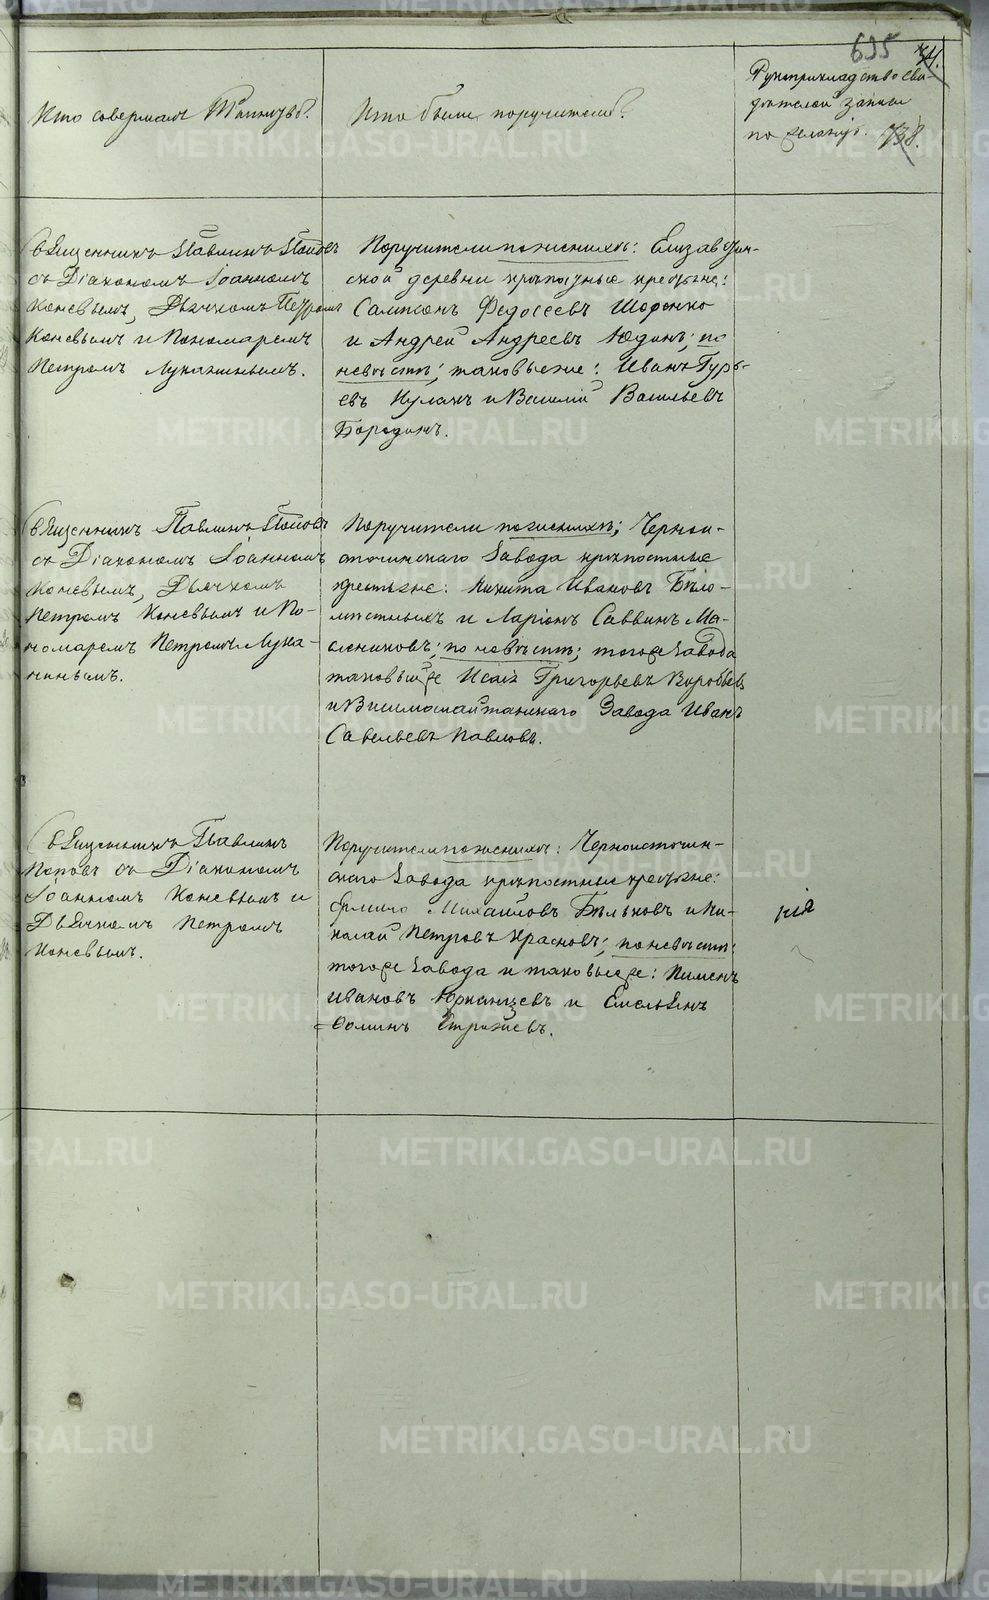 695 34.
Кто совершалъ Таинство?
Кто были поручители?
Рукоприкладство сви-
дѣтелей записи
по желанію. 738.
Священникъ Павлинъ Поповъ
съ Діакономъ Іоанномъ
Коневымъ, Дьячкомъ Петромъ
Коневымъ и Пономаремъ
Петромъ Луканинымъ.
Поручители по женихѣ: Елизаветин-
ской деревни крѣпостные крестьяне:
Сампсонъ Федосеевъ
и Андрей Андреевъ Юдинъ; по
невѣстѣ; таковые же: Иванъ Гурь-
евъ Кулакъ и Василій Васильевъ
Бородинъ.
Священникъ Павлинъ Поповъ
съ Діакономъ Іоанномъ
Коневымъ, Дьячкомъ
Петромъ Коневымъ и По-
номаремъ Петромъ Лука-
нинымъ.
Поручители по женихѣ; Черно-
источинскаго Завода крѣпостные
крестьяне: Никита Ивановъ Бѣло-
мѣстныхъ и Ларіонъ Саввинъ Ма-
сленниковъ; по невѣстѣ; того же Завода
таковые же Исаія Григорьевъ Воробьевъ
и Висимошайтанскаго Завода Иванъ
Савельевъ Павловъ.
Священникъ Павлинъ
Поповъ съ Діакономъ
Іоанномъ Коневымъ и
Дьячкомъ Петромъ
Коневымъ.
Поручители по женихѣ: Черноисточин-
скаго Завода крѣпостные крестьяне:
Ермило Михайловъ Бѣльковъ и Ни-
колай Петровъ Красновъ; по невѣстѣ:
того же Завода и таковые же: Пименъ
Ивановъ Юрханцевъ и Емельянъ
Фоминъ Стрижевъ.
METRIKI.GASO-URAL.RU